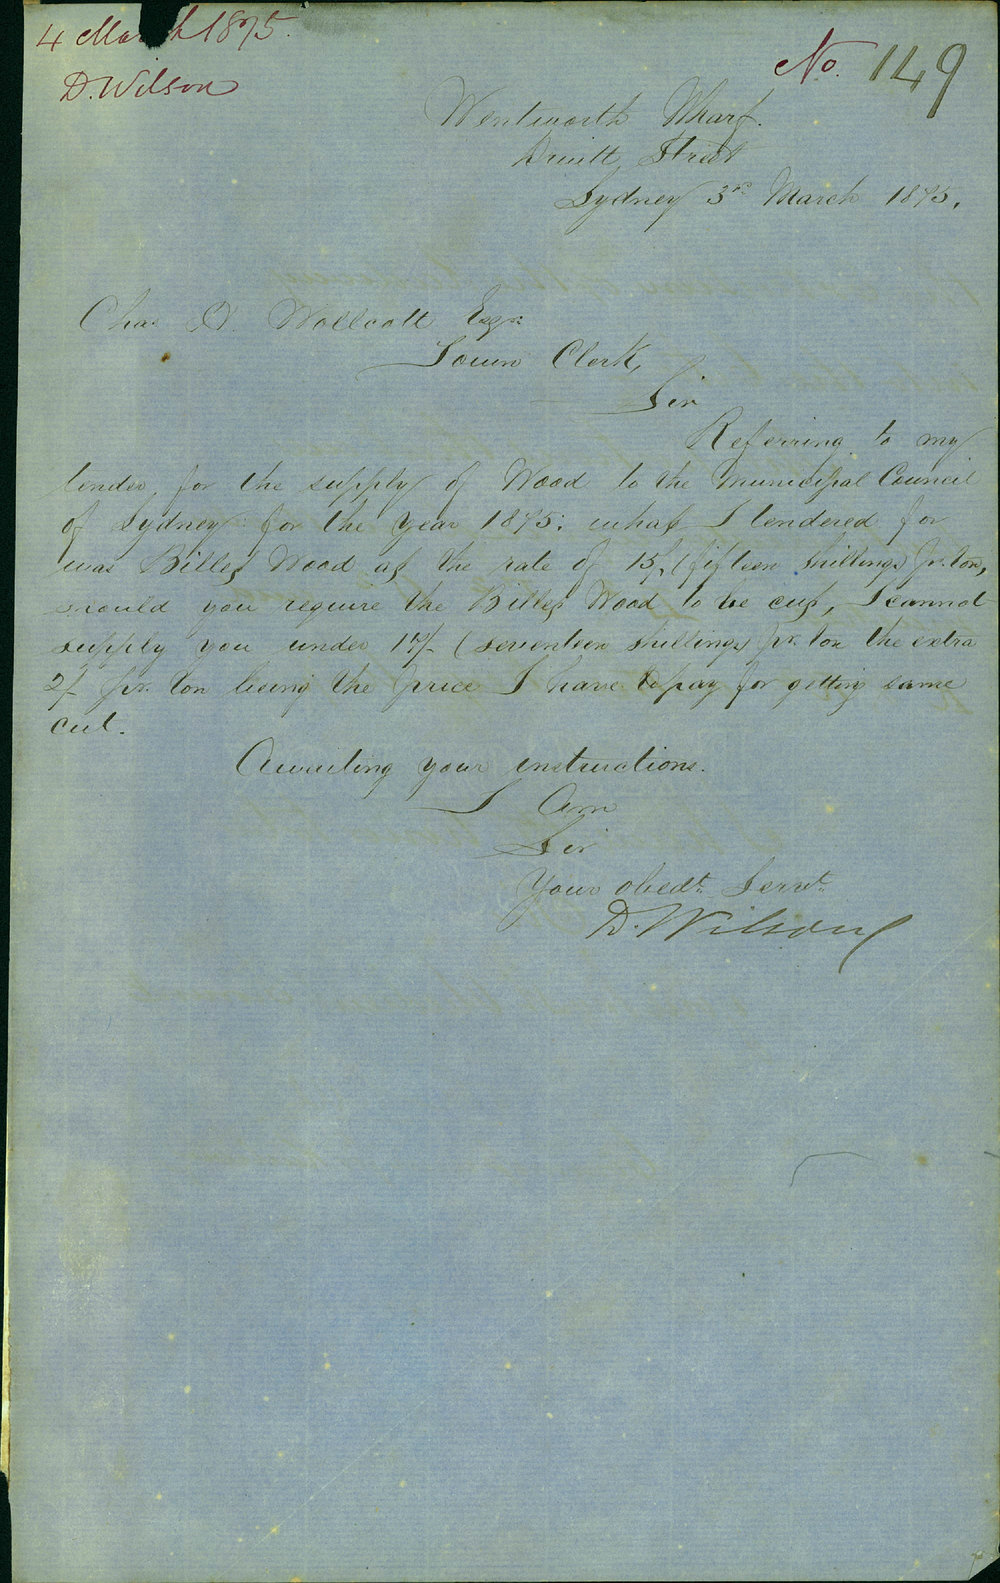 4 March 1875.
D. Wilson
No. 149
Wentworth Wharf.
Druitt Street
Sydney 3rd March 1875.
Chas H. Woolcott Esqr.
Town Clerk,
Sir
Referring to my
tender, for the supply of Wood to the Municipal Council
of Sydney for the Year 1875; what I tendered for
was Billet Wood at the rate of 15/- (fifteen shillings) pr. ton,
should you require the Billet Wood to be cut, I cannot
supply you under 17/- (seventeen shillings) pr. ton the extra
2/- pr. ton being the price I have to pay for getting same
cut.
Awaiting your instructions.
I Am
Sir
Your obedt. Servt.
D. Wilson